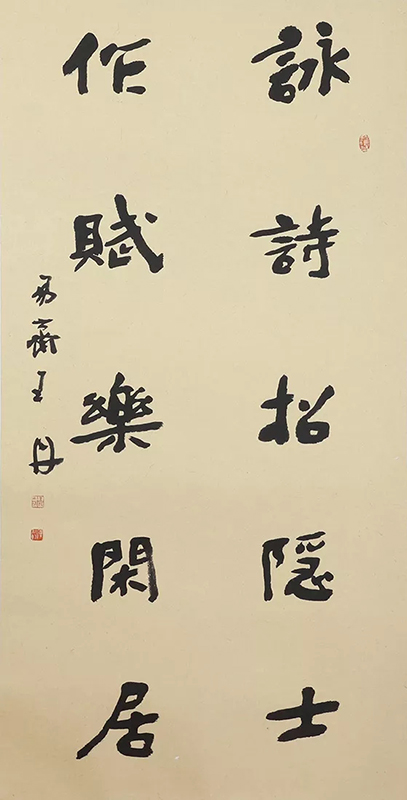 詠詩招隱士
作賦樂閑居
易齋王丹